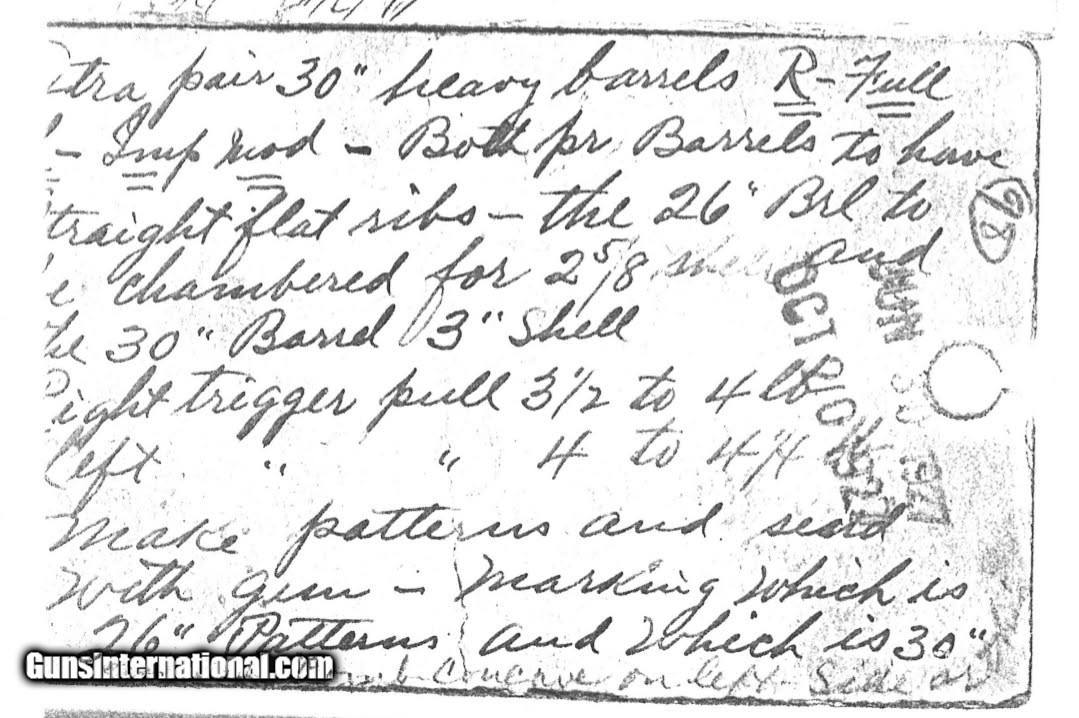 tra pair 30" heavy barrels R - Full
- Imp Mod - Both pr Barrels to have
traight flat ribs - the 26" Brl to
e chambered for 2 5/8 shell and
he 30" Barrel 3" Shell
ight trigger pull 3 1/2 to 4 lb
Left " " 4 to 4 1/4
Make patterns and send
With gun - Marking Which is
26" Patterns and Which is 30"
concave on left side or
98
OCT
GunsInternational.com